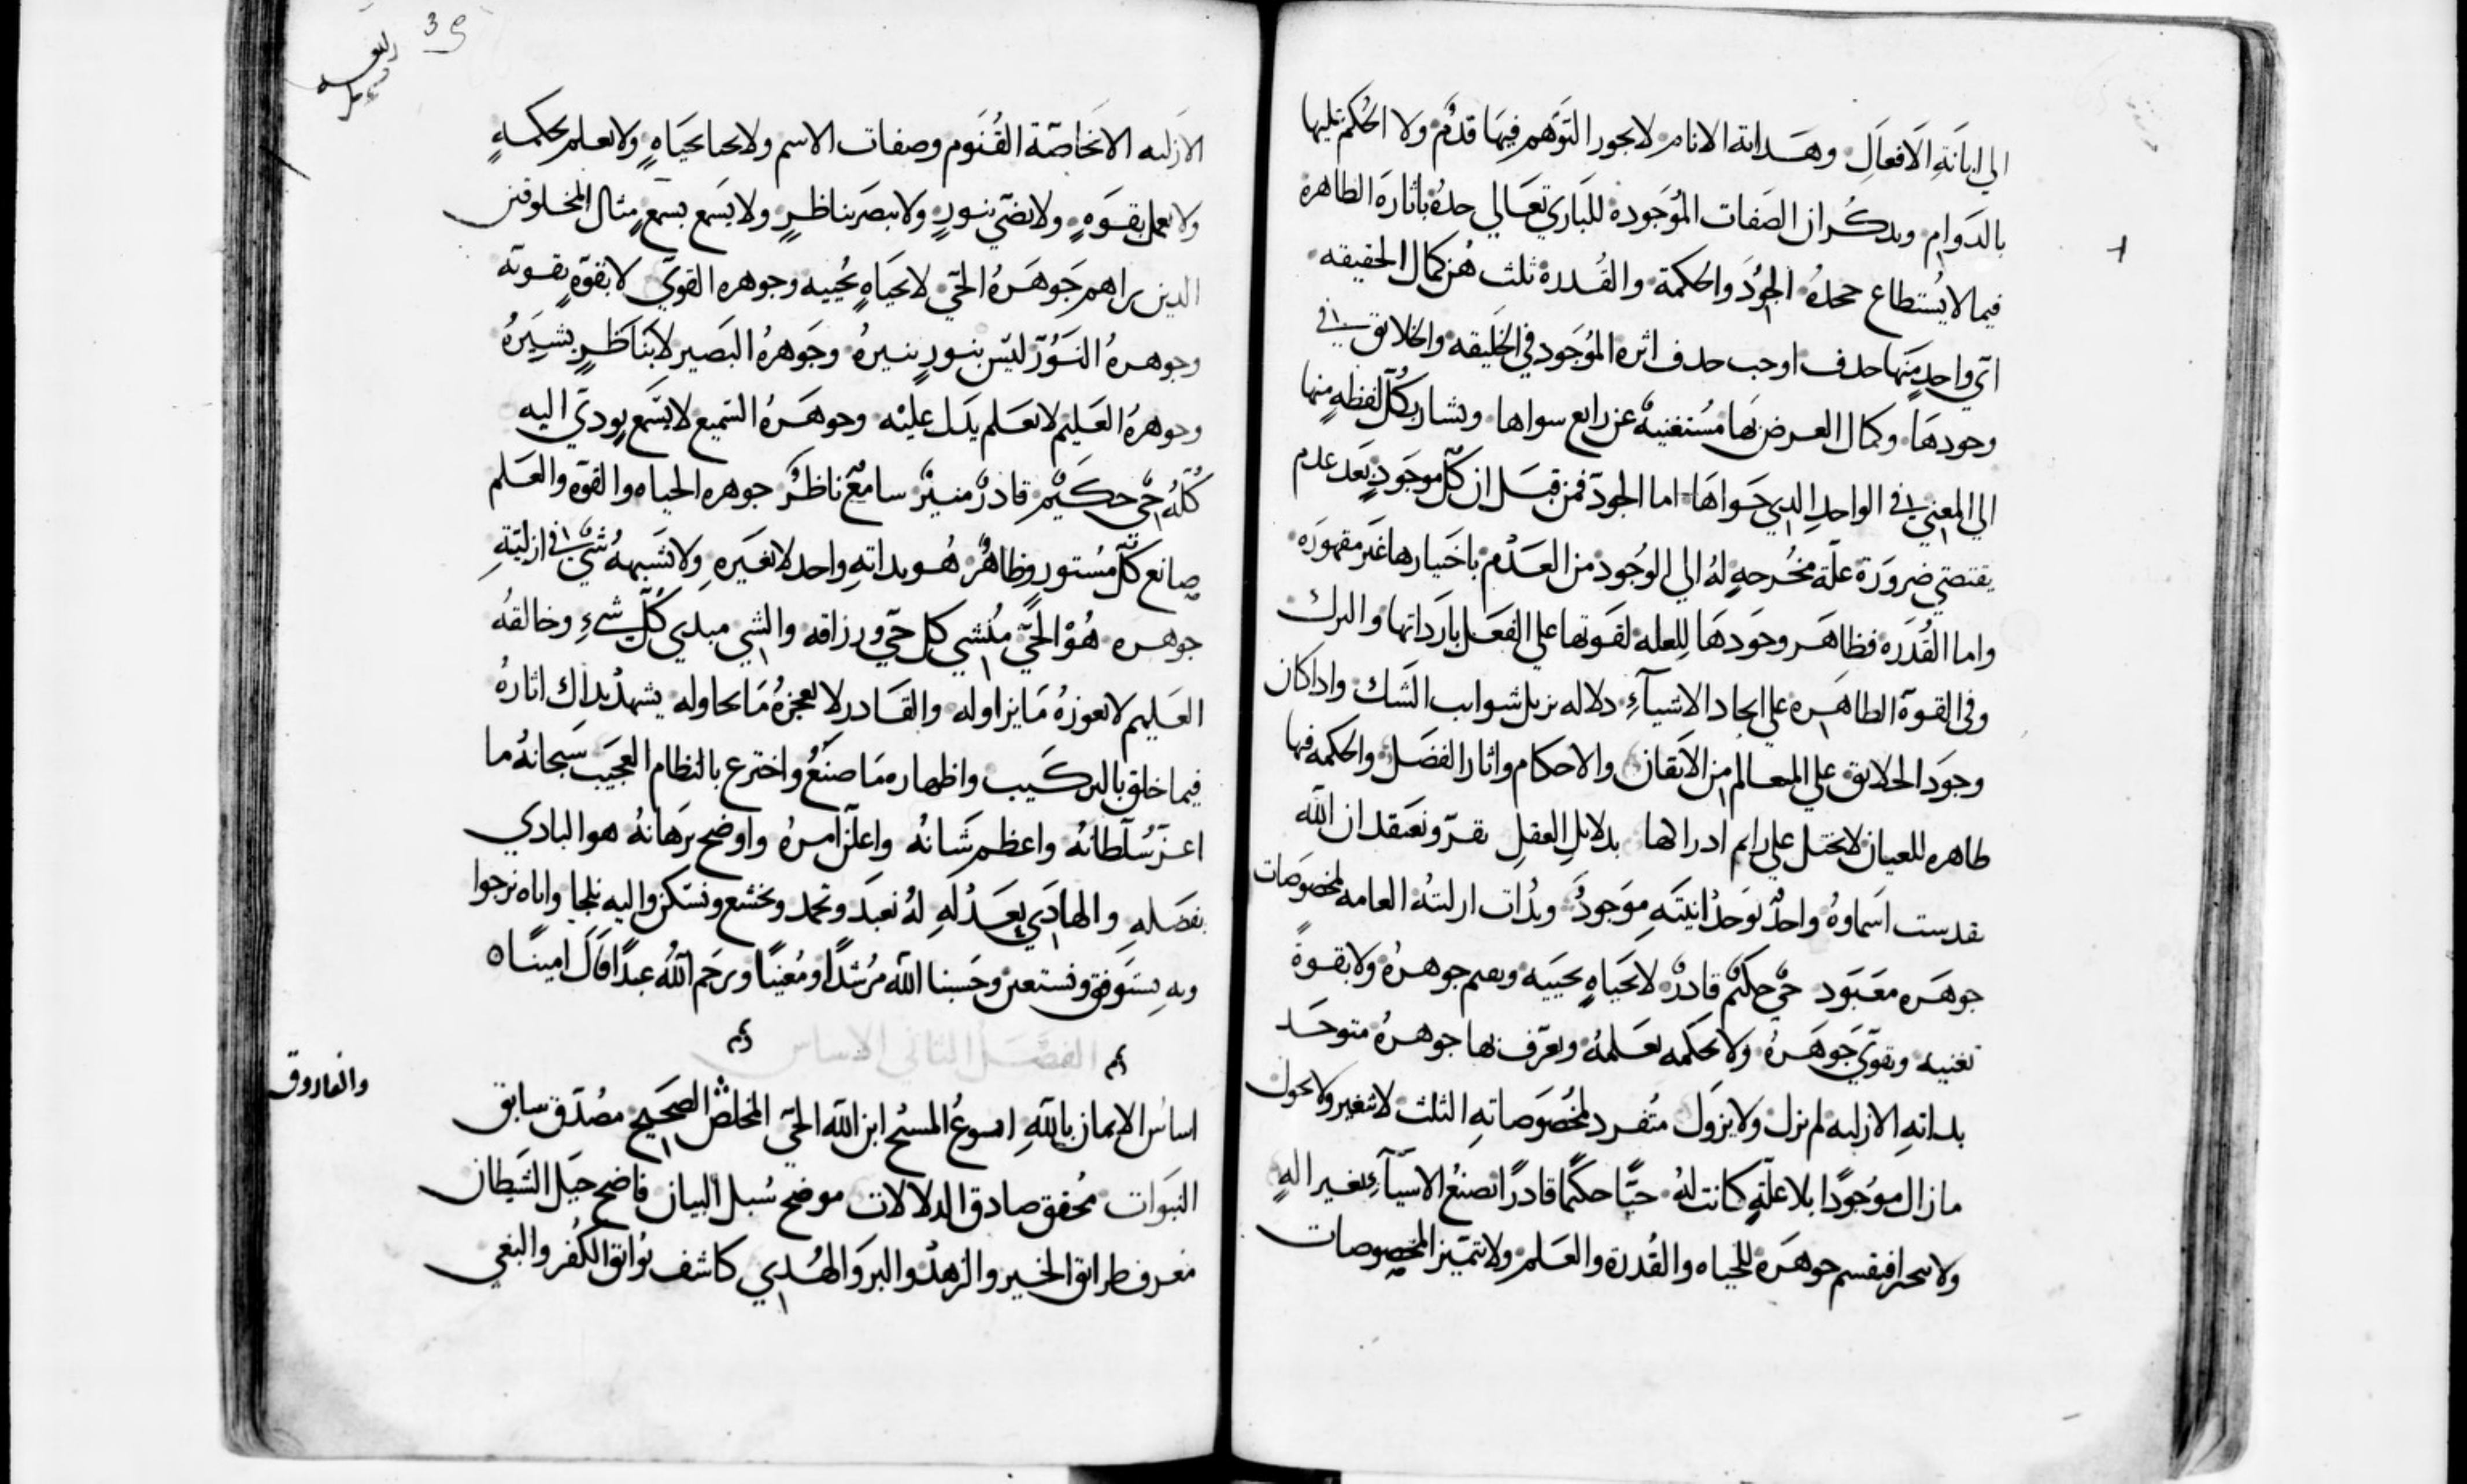 الي ابانة الافعال وهدايه الانام لا يجوز التوهم فيها قدم ولا الحكم تليها
بالدوام وبدكر ان الصفات الموجوده للباري تعالي حده باثاره الظاهره
فيما لا يُستطاع جحدهُ الجود والحكمة والقدرة ثلث هن كمال الحقيقه
اي واحدٍ منها حدف اوجب حدف اثره الموجود في الخليقه والخلايق في
وجودها وكمال العرض بها مُستغنيه عن رابع سواها ويشار بكل لفظه منها
الي المعني في الواحد الدي حواها اما الجود فمن قبل ان كل موجودٍ بعد عدم
يقتضي ضرورة علة مخرجه لهُ الي الوجود من العدم باختيارها غير مقهوره
واما القدره فظاهر وجودها للعله لقوتها علي الفعل بارداتها والترك
وفي القوة الظاهره علي ايجاد الاشيآء دلاله تزيل شوايب الشك واداكان
وجود الخلايق علي المعالم من الاتقان والاحكام واثار الفضل والحكمه فيها
ظاهره للعيان لا يختل علي رايم ادراكها بدلايل العقل نقر ونعتقد ان الله
تقدست اسماوهُ واحدٌ بوحدانيته موجود وبدات ازليتهُ العامه لمخصوصات
جوهره معبود حي حكيم قادر لا بحياهٍ تحييه ويقيم جوهره ولا بقوةٍ
تغنيه وتقوي جوهره ولا بحكمه تعلمهُ ويعرف بها جوهره متوحد
بداته الازليه لم يزل ولا يزول متفرد بمخصوصاته الثلث لا يتغير ولا يحول
ما زال موجودًا بلا علةٍ كانت لهُ حيًّا حكيمًا قادرًا يصنع الاشيآء بغير الهٍ
ولا يتجزا فينقسم جوهره للحياه والقدرة والعلم ولا تتميز المخصوصات
39
الازليه الا بخاصّة القنوم وصفات الاسم ولا يحيا بحياهٍ ولا يعلم بحكمهٍ
ولا يعمل بقوهٍ ولا يضي بنورٍ ولا يبصر بناظرٍ ولا يسمع بسمعٍ مثال المخلوقين
الدين براهم جوهره الحي لا بحياهٍ تحييه وجوهره القوي لا بقوةٍ تقوته
وجوهرهُ النور ليس بنورٍ ينيرهُ وجوهرهُ البصير لا بناظرٍ يشيرهُ
وجوهرهُ العليم لا بعلم يدل عليه وجوهرهُ السميع لا بسمع يودي اليه
كلهُ حي حكيم قادر منير سامع ناظر جوهره الحياه والقوه والعلم
صانع كل مستور وظاهر هو بداته واحد لا بغيره ولا يشبههُ شي في ازليته
جوهره هو الحي منشي كل حي ورزاقه والشي مبدي كل شيء وخالقهُ
العليم لا يعوزهُ ما يزاوله والقادر لا يعجزهُ ما يحاوله يشهد بداك اثارهُ
فيما خلق بالتركيب واظهاره ما صنع واخترع بالنظام العجيب سبحانهُ ما
اعز سلطانهُ واعظم شانهُ واعلن امرهُ واوضح برهانهُ هو البادي
بفضله والهادي بعدله لهُ نعبد ونحمد ونخشع ونستكن واليه نلجا واياه نرجوا
وبه نستوفق ونستعين وحسبنا الله مرشدًا ومعينًا ويرحم الله عبدًا قال امينًا ٥
الفصل الثاني الاساس
اساس الايمان بالله ايسوع المسيح ابن الله الحي المخلص الصحيح مصدق سابق
النبوات محقق صادق الدلالات موضح سُبل البيان فاضح حيل الشيطان
والفاروق
معرف طرايق الخير والزهد والبر والهُدي كاشف بوايق الكفر والبغي